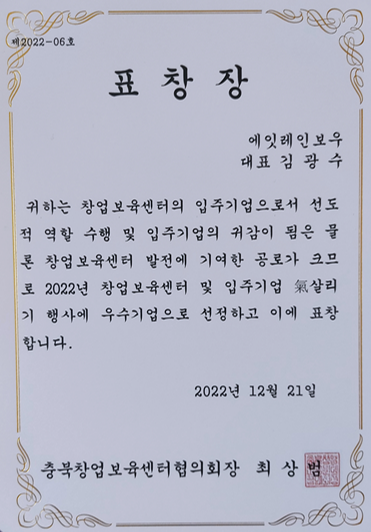 제2022-06호
표 창 장
에잇레인보우
대표 김 광 수
귀하는 창업보육센터의 입주기업으로서 선도
적 역할 수행 및 입주기업의 귀감이 됨은 물
론 창업보육센터 발전에 기여한 공로가 크므
로 2022년 창업보육센터 및 입주기업 氣살리
기 행사에 우수기업으로 선정하고 이에 표창
합니다.
2022년 12월 21일
충북창업보육센터협의회장 최 상 범